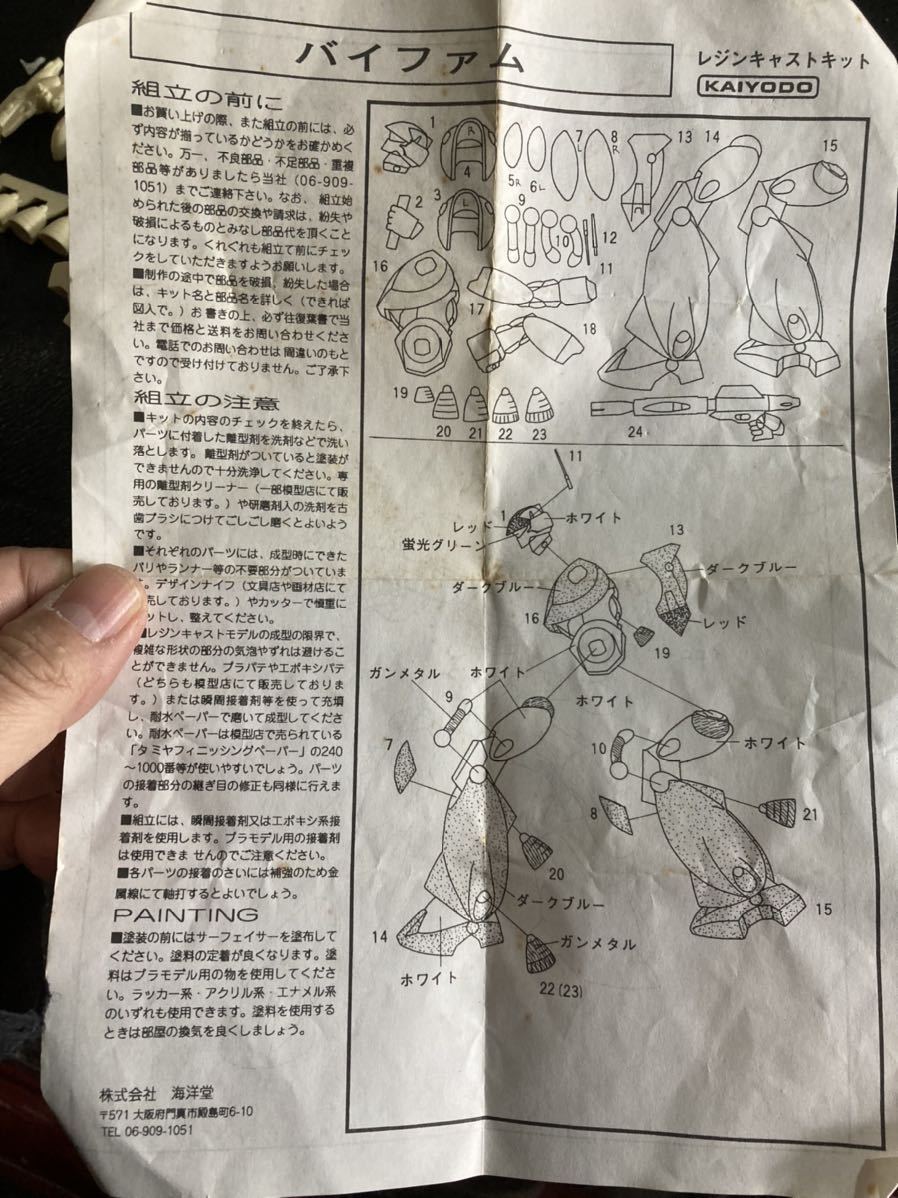 バイファム
レジンキャストキット
KAIYODO
組立の前に
■お買い上げの際、また組立の前には、必
ず内容が揃っているかどうかをお確かめく
ださい。万一、不良部品・不足部品・重複
部品等がありましたら当社（06-909-
1051）までご連絡下さい。なお、組立始
められた後の部品の交換や請求は、紛失や
破損によるものとみなし部品代を頂くこと
になります。くれぐれも組立て前にチェッ
クをしていただきますようお願いします。
■制作の途中で部品を破損、紛失した場合
は、キット名と部品名を詳しく（できれば
図入で。）お書きの上、必ず往復葉書で当
社まで価格と送料をお問い合わせくださ
い。電話でのお問い合わせは間違いのもと
ですので受け付けておりません。ご了承下
さい。
組立の注意
■キットの内容のチェックを終えたら、
パーツに付着した離型剤を洗剤などで洗い
落とします。離型剤がついていると塗装が
できませんので十分洗浄してください。専
用の離型剤クリーナー（一部模型店にて販
売しております。）や研磨剤入の洗剤を古
歯ブラシにつけてごしごし磨くとよいよう
です。
■それぞれのパーツには、成型時にできた
バリやランナー等の不要部分がついていま
す。デザインナイフ（文具店や画材店にて
売しております。）やカッターで慎重に
ットし、整えてください。
■レジンキャストモデルの成型の限界で、
複雑な形状の部分の気泡やずれは避けるこ
とができません。プラパテやエポキシパテ
（どちらも模型店にて販売しておりま
す。）または瞬間接着剤等を使って充填
し、耐水ペーパーで磨いて成型してくださ
い。耐水ペーパーは模型店で売られている
「タミヤフィニッシングペーパー」の240
～1000番等が使いやすいでしょう。パーツ
の接着部分の継ぎ目の修正も同様に行えま
す。
■組立には、瞬間接着剤又はエポキシ系接
着剤を使用します。プラモデル用の接着剤
は使用できませんのでご注意ください。
■各パーツの接着のさいには補強のため金
属線にて軸打するとよいでしょう。
PAINTING
■塗装の前にはサーフェイサーを塗布して
ください。塗料の定着が良くなります。塗
料はプラモデル用の物を使用してくださ
い。ラッカー系・アクリル系・エナメル系
のいずれも使用できます。塗料を使用する
ときは部屋の換気を良くしましょう。
株式会社 海洋堂
〒571 大阪府門真市殿島町6-10
TEL 06-909-1051
1
R
4
5R
6L
7L
8R
13
14
15
2
3
L
9
10
12
11
16
17
18
19
20
21
22
23
24
11
1
レッド
ホワイト
蛍光グリーン
13
ダークブルー
ダークブルー
16
レッド
19
ガンメタル
ホワイト
ホワイト
9
7
10
ホワイト
8
21
20
ダークブルー
15
14
ガンメタル
ホワイト
22(23)